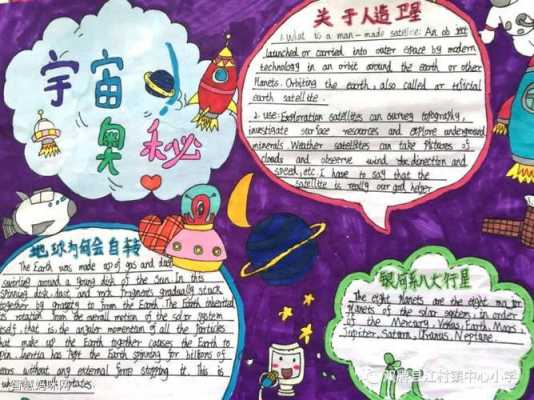 宇宙
奥秘
关于人造卫星
1. What is a man-made satellite: An ob
launched or carried into outer space by modern
technology in an orbit around the earth or other
Planets. Orbiting the earth, also called ar tificial
earth satellite.
2. use: Exploration satellites can survey topography,
investigate surface resources and explore underground
minerals Weather satellites can take Pictures of
clouds and observe wind direction and
speed, etc. I have to say that the
satellite is really our god helper
地球为何会自转
The Earth was made up of gas and dust
swirling around a young disk of the Sun. In this
spinning disk, dust and rock fragments gradually stuck
together by gravity to form the Earth. The Earth inherited
its rotation from the overall motion of the solar system
itself, that is, the angular momentum of all the Particles
that make up the Earth together causes the Earth to
spin. Inertia has kept the Earth spinning for billions of
years without any external force stopping it. This is
why rotates.
银河系八大行星
The eight Planets are the eight major
Planets of the solar system, in order
of the Mercury, Venus, Earth, Mars
Jupiter, Saturn, Uranus, Neptune.
智慧妈咪网
县江村镇中心小学